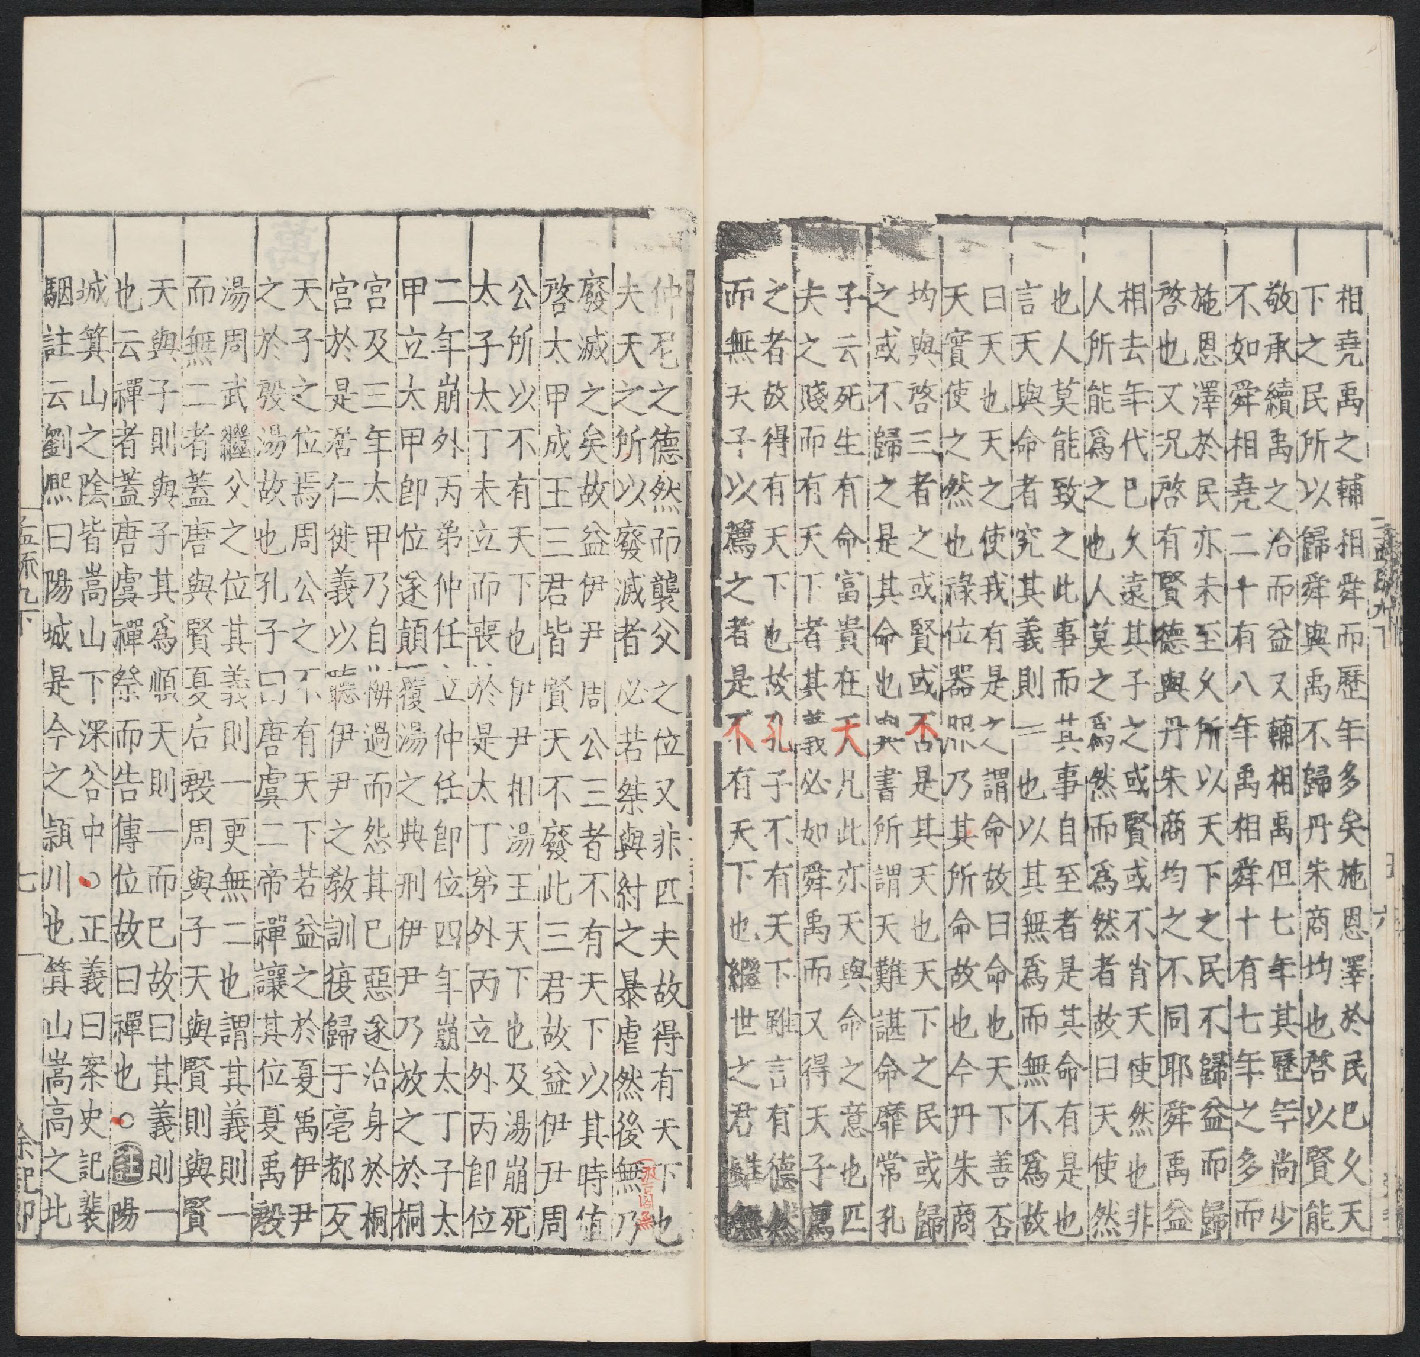 相堯禹之輔相舜而歷年多矣施恩澤於民已久天
下之民所以歸舜與禹不歸丹朱商均也啓以賢能
敬承續禹之治而益又輔相禹但七年其歷年尚少
不如舜相堯二十有八年禹相舜十有七年之多而
施恩澤於民亦未至久所以天下之民不歸益而歸
啓也又況啓有賢德與丹朱商均之不同耶舜禹益
相去年代已久遠其子之或賢或不肖天使然也非
人所能爲之也人莫之爲然而爲然者故曰天使然
也人莫能致之此事而其事自至者是其命有是也
言天與命者究其義則一也以其無爲而無不爲故
曰天也天之使我有是之謂命故曰命也天下善否
天實使之然也祿位器服乃其所命故也今丹朱商
均與啓三者之或賢或不是其天也天下之民或歸
之或不歸之是其命也與書所謂天難諶命靡常孔
子云死生有命富貴在天凡此亦天與命之意也匹
夫之賤而有天下者其義必如舜禹而又得天子薦
之者故得有天下也故孔子不有天下雖言有德然
而無天子以薦之者是不有天下也繼世之君雖無
仲尼之德然而襲父之位又非匹夫故得有天下也
夫天之所以廢滅者必若桀與紂之暴虐然後無乃
廢滅之矣故益伊尹周公三者不有天下以其時值
啓太甲成王三君皆賢天不廢此三君故益伊尹周
公所以不有天下也伊尹相湯王天下也及湯崩死
太子太丁未立而喪於是太丁弟外丙立外丙即位
二年崩外丙弟仲任立仲任即位四年崩太丁子太
甲立太甲即位遂顛覆湯之典刑伊尹乃放之於桐
宮及三年太甲乃自悔過而怨其已惡遂治身於桐
宮於是居仁徙義以聽伊尹之教訓復歸于亳都反
天子之位焉周公之不有天下若益之於夏禹伊尹
之於殷湯故也孔子曰唐虞二帝禪讓其位夏禹殷
湯周武繼父之位其義則一更無二也謂其義則一
而無二者蓋唐與賢夏后殷周與子天與賢則與賢
天與子則與子其爲順天則一而已故曰其義則一
也云禪者蓋唐虞禪祭而告傳位故曰禪也○注陽
城箕山之陰皆嵩山下深谷中○正義曰案史記裴
駰註云劉熙曰陽城是今之潁川也箕山嵩高之北
孟疏九下
七